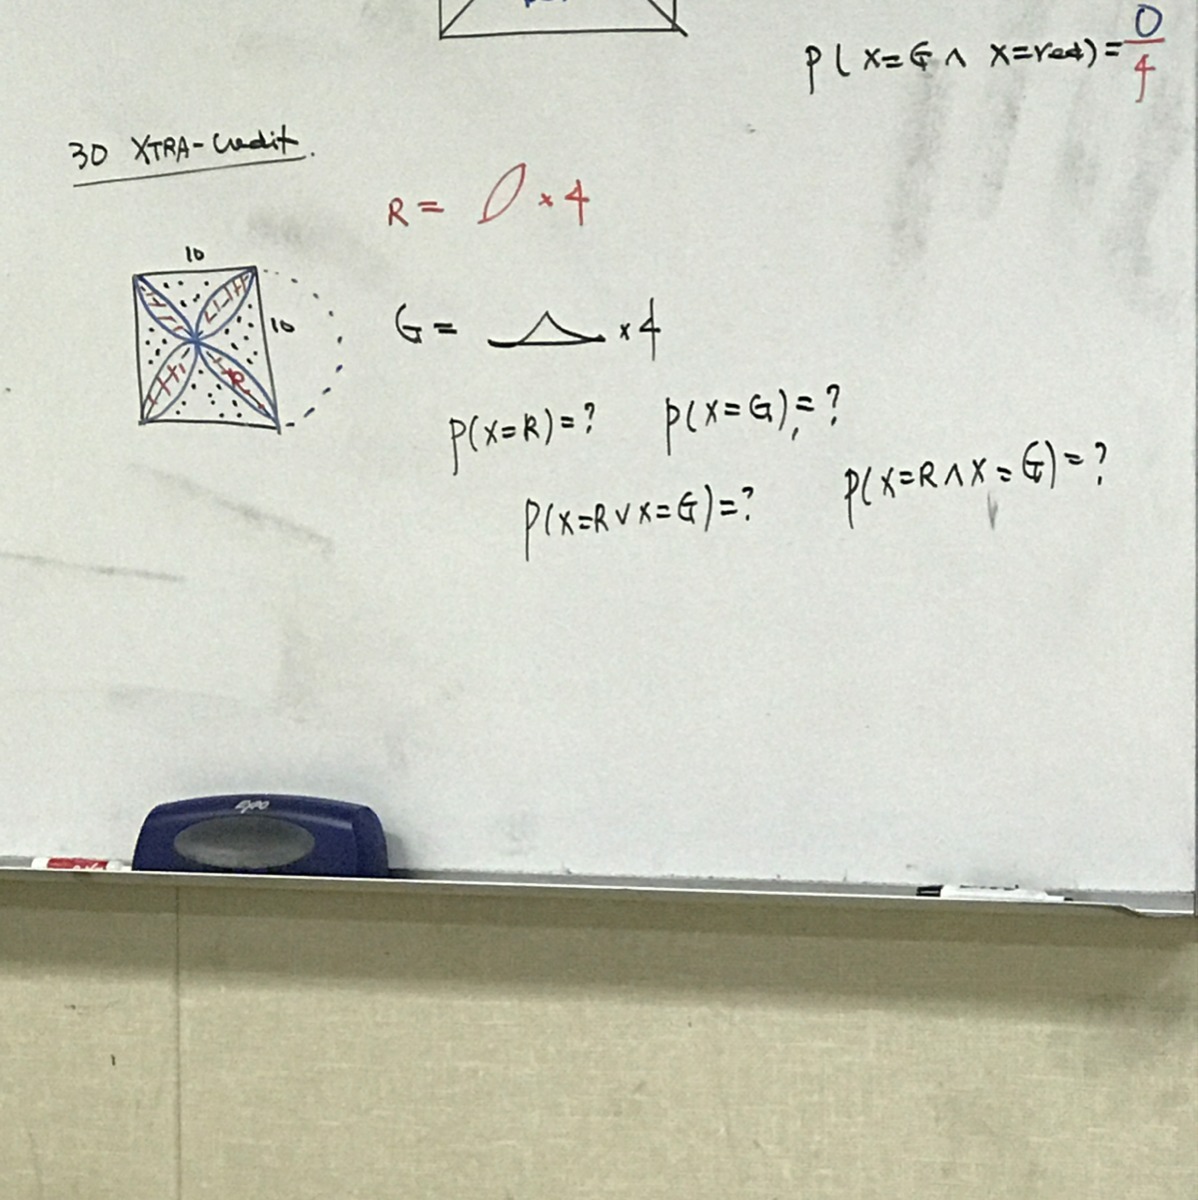 P(X=G ∧ X=red)=0/4
30 XTRA-Credit.
R = × 4
10
10
G = × 4
R
P(X=R)=? P(X=G),=?
P(X=R∧X=G)=?
P(X=R∨X=G)=?
EXPO